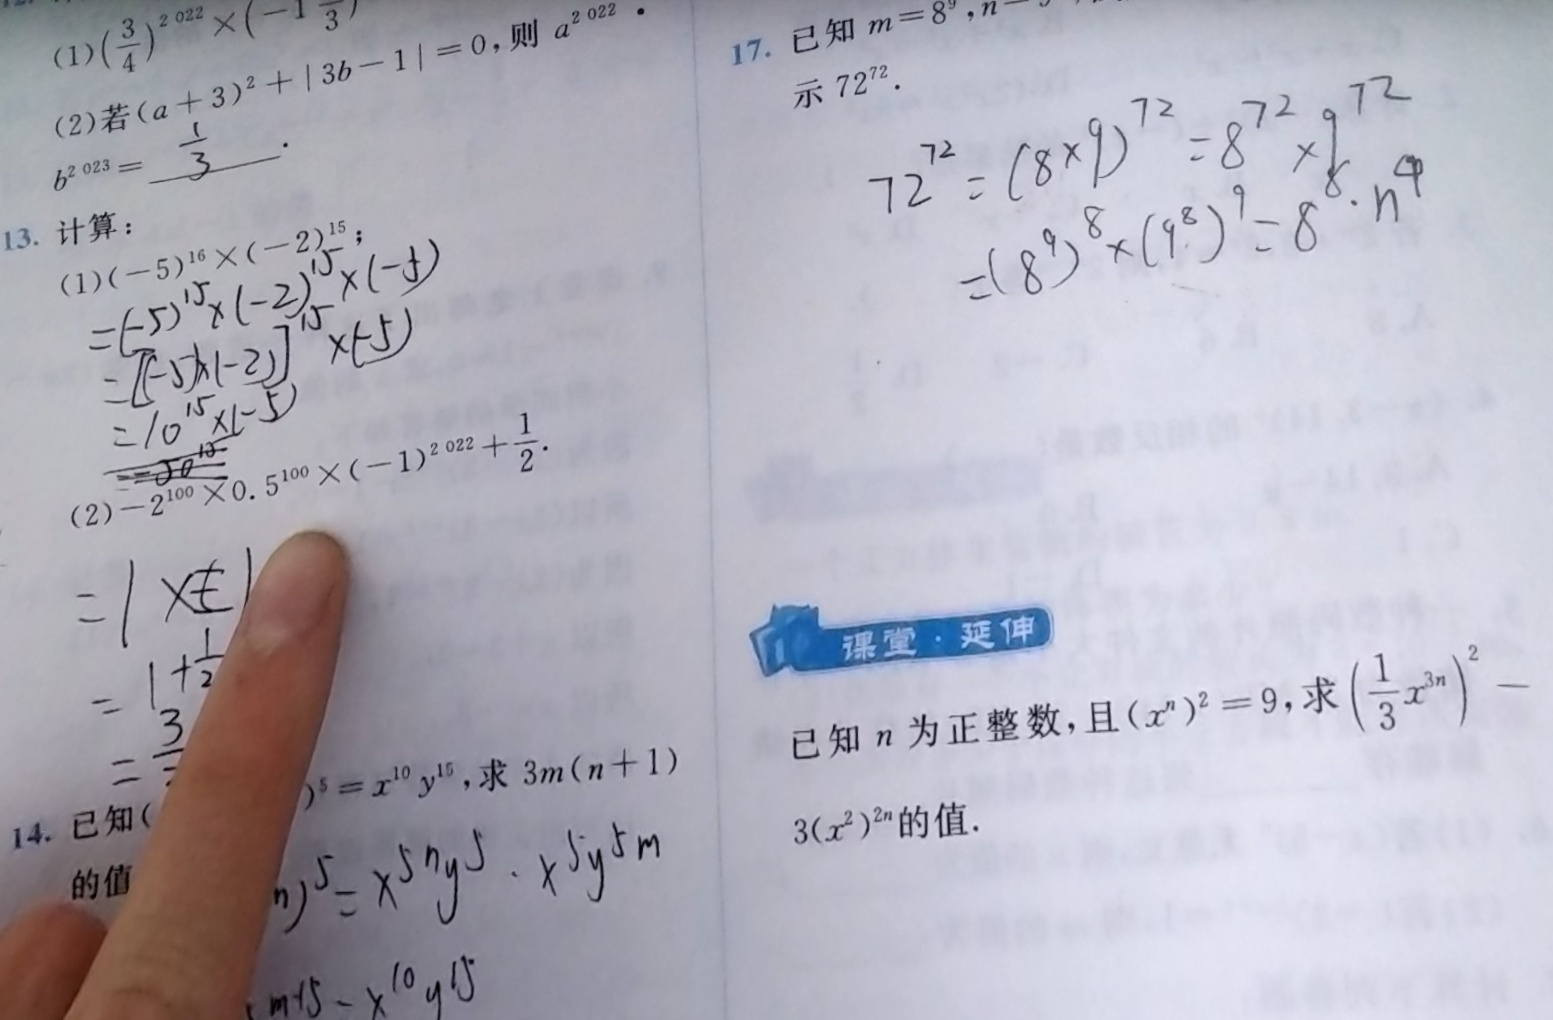 (1)(3/4)^2022×(-1 /3)
(2)若(a+3)²+|3b-1|=0,则 a^2022·
b^2023= 1/3 .
13. 计算:
(1)(-5)^16×(-2)^15;
=(-5)^15×(-2)^15×(-5)
=[(-5)×(-2)]^15×(-5)
=10^15×(-5)
(2)-2^100×0.5^100×(-1)^2022+1/2.
=1×
=1+1/2
=3
14. 已知( )^5=x^10y^15,求 3m(n+1)
的值
n)^5=x^5ny^5·x^5y^5m
m+15=x^10y^15
17. 已知 m=8^9,n=
示 72^72.
72^72=(8×9)^72=8^72×9^72
=(8^9)^8×(9^8)^9=8^8·n^9
课堂·延伸
已知 n 为正整数,且(x^n)²=9,求(1/3 x^3n)²-
3(x²)^2n的值.